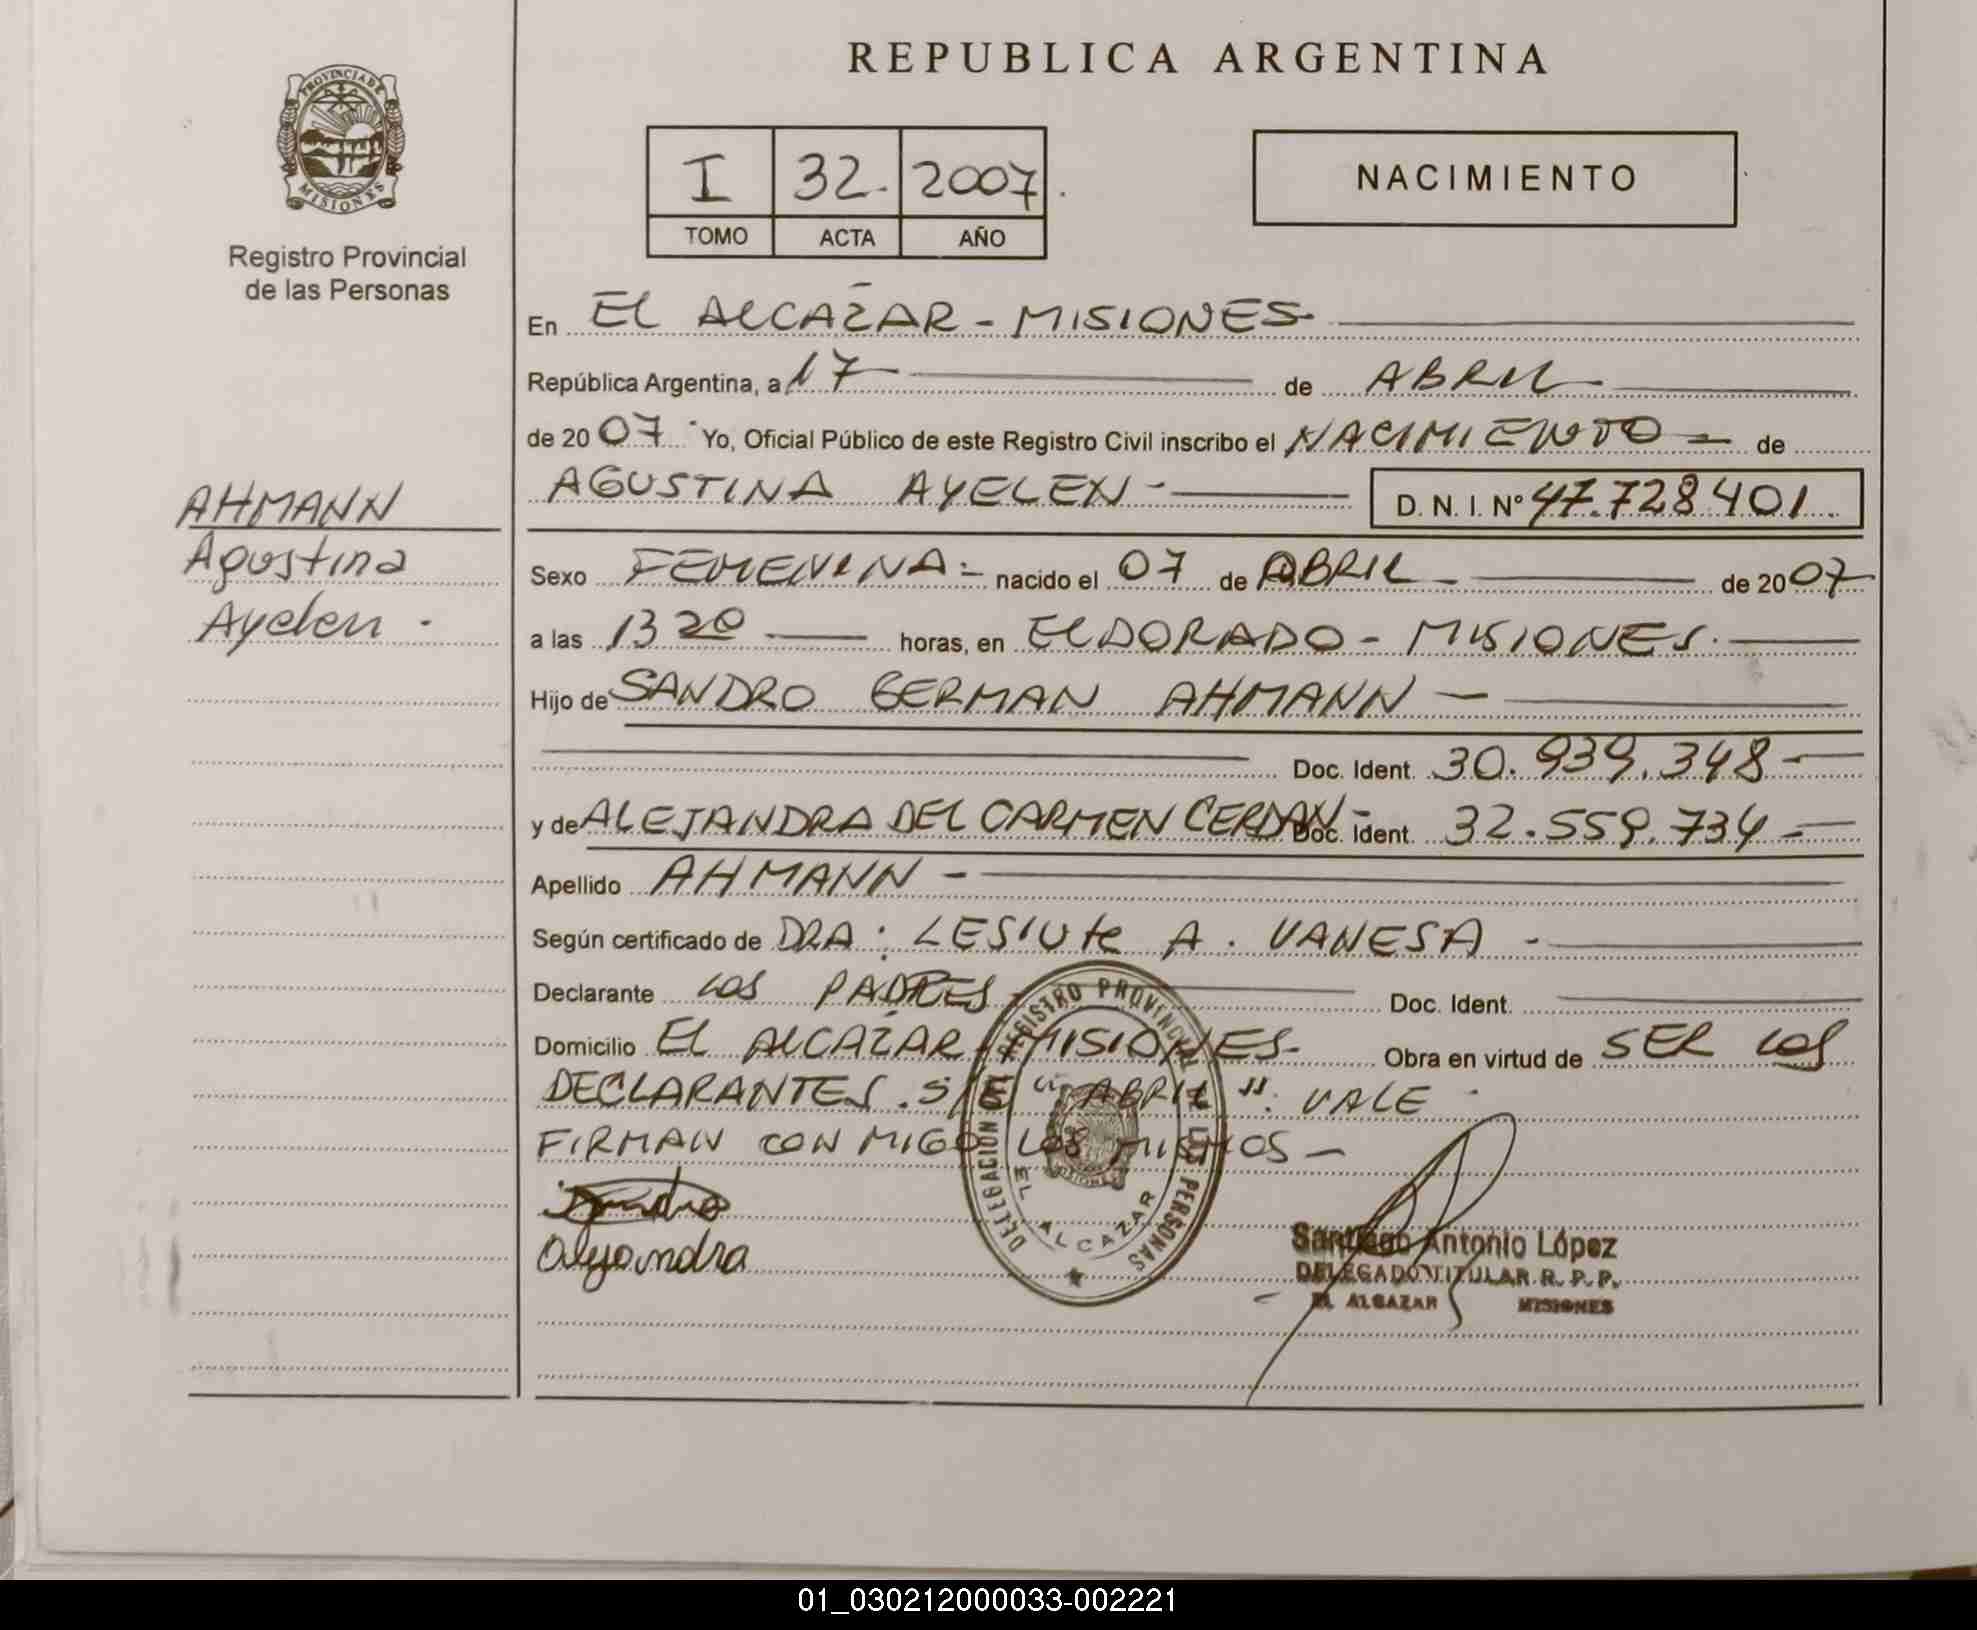 REPUBLICA ARGENTINA
PROVINCIA DE
MISIONES
Registro Provincial
de las Personas
I 32. 2007.
TOMO ACTA AÑO
NACIMIENTO
En EL ALCAZAR - MISIONES.
República Argentina, a 17 de ABRIL
de 20 07 Yo, Oficial Público de este Registro Civil inscribo el NACIMIENTO de
AGUSTINA AYELEN - D. N. I. Nº 47.728.401.
AHMANN
Agustina
Ayelen.
Sexo FEMENINA.- nacido el 07 de ABRIL de 20 07
a las 13 20 horas, en ELDORADO - MISIONES.
Hijo de SANDRO GERMAN AHMANN -
Doc. Ident. 30.939.348-
y de ALEJANDRA DEL CARMEN CERDAN- Doc. Ident. 32.559.734-
Apellido AHMANN -
Según certificado de DRA: A. VANESA -
Declarante LOS PADRES - Doc. Ident.
Domicilio EL ALCAZAR - MISIONES- Obra en virtud de SER LOS
DECLARANTES. S/E "ABRIL". VALE
FIRMAN CONMIGO LOS MISMOS -
DELEGACIÓN REGISTRO PROVINCIAL DE LAS PERSONAS
EL ALCAZAR
MISIONES
Sandro
Alejandra
Santiago Antonio López
DELEGADO TITULAR R. P. P.
EL ALCAZAR MISIONES
01_030212000033-002221